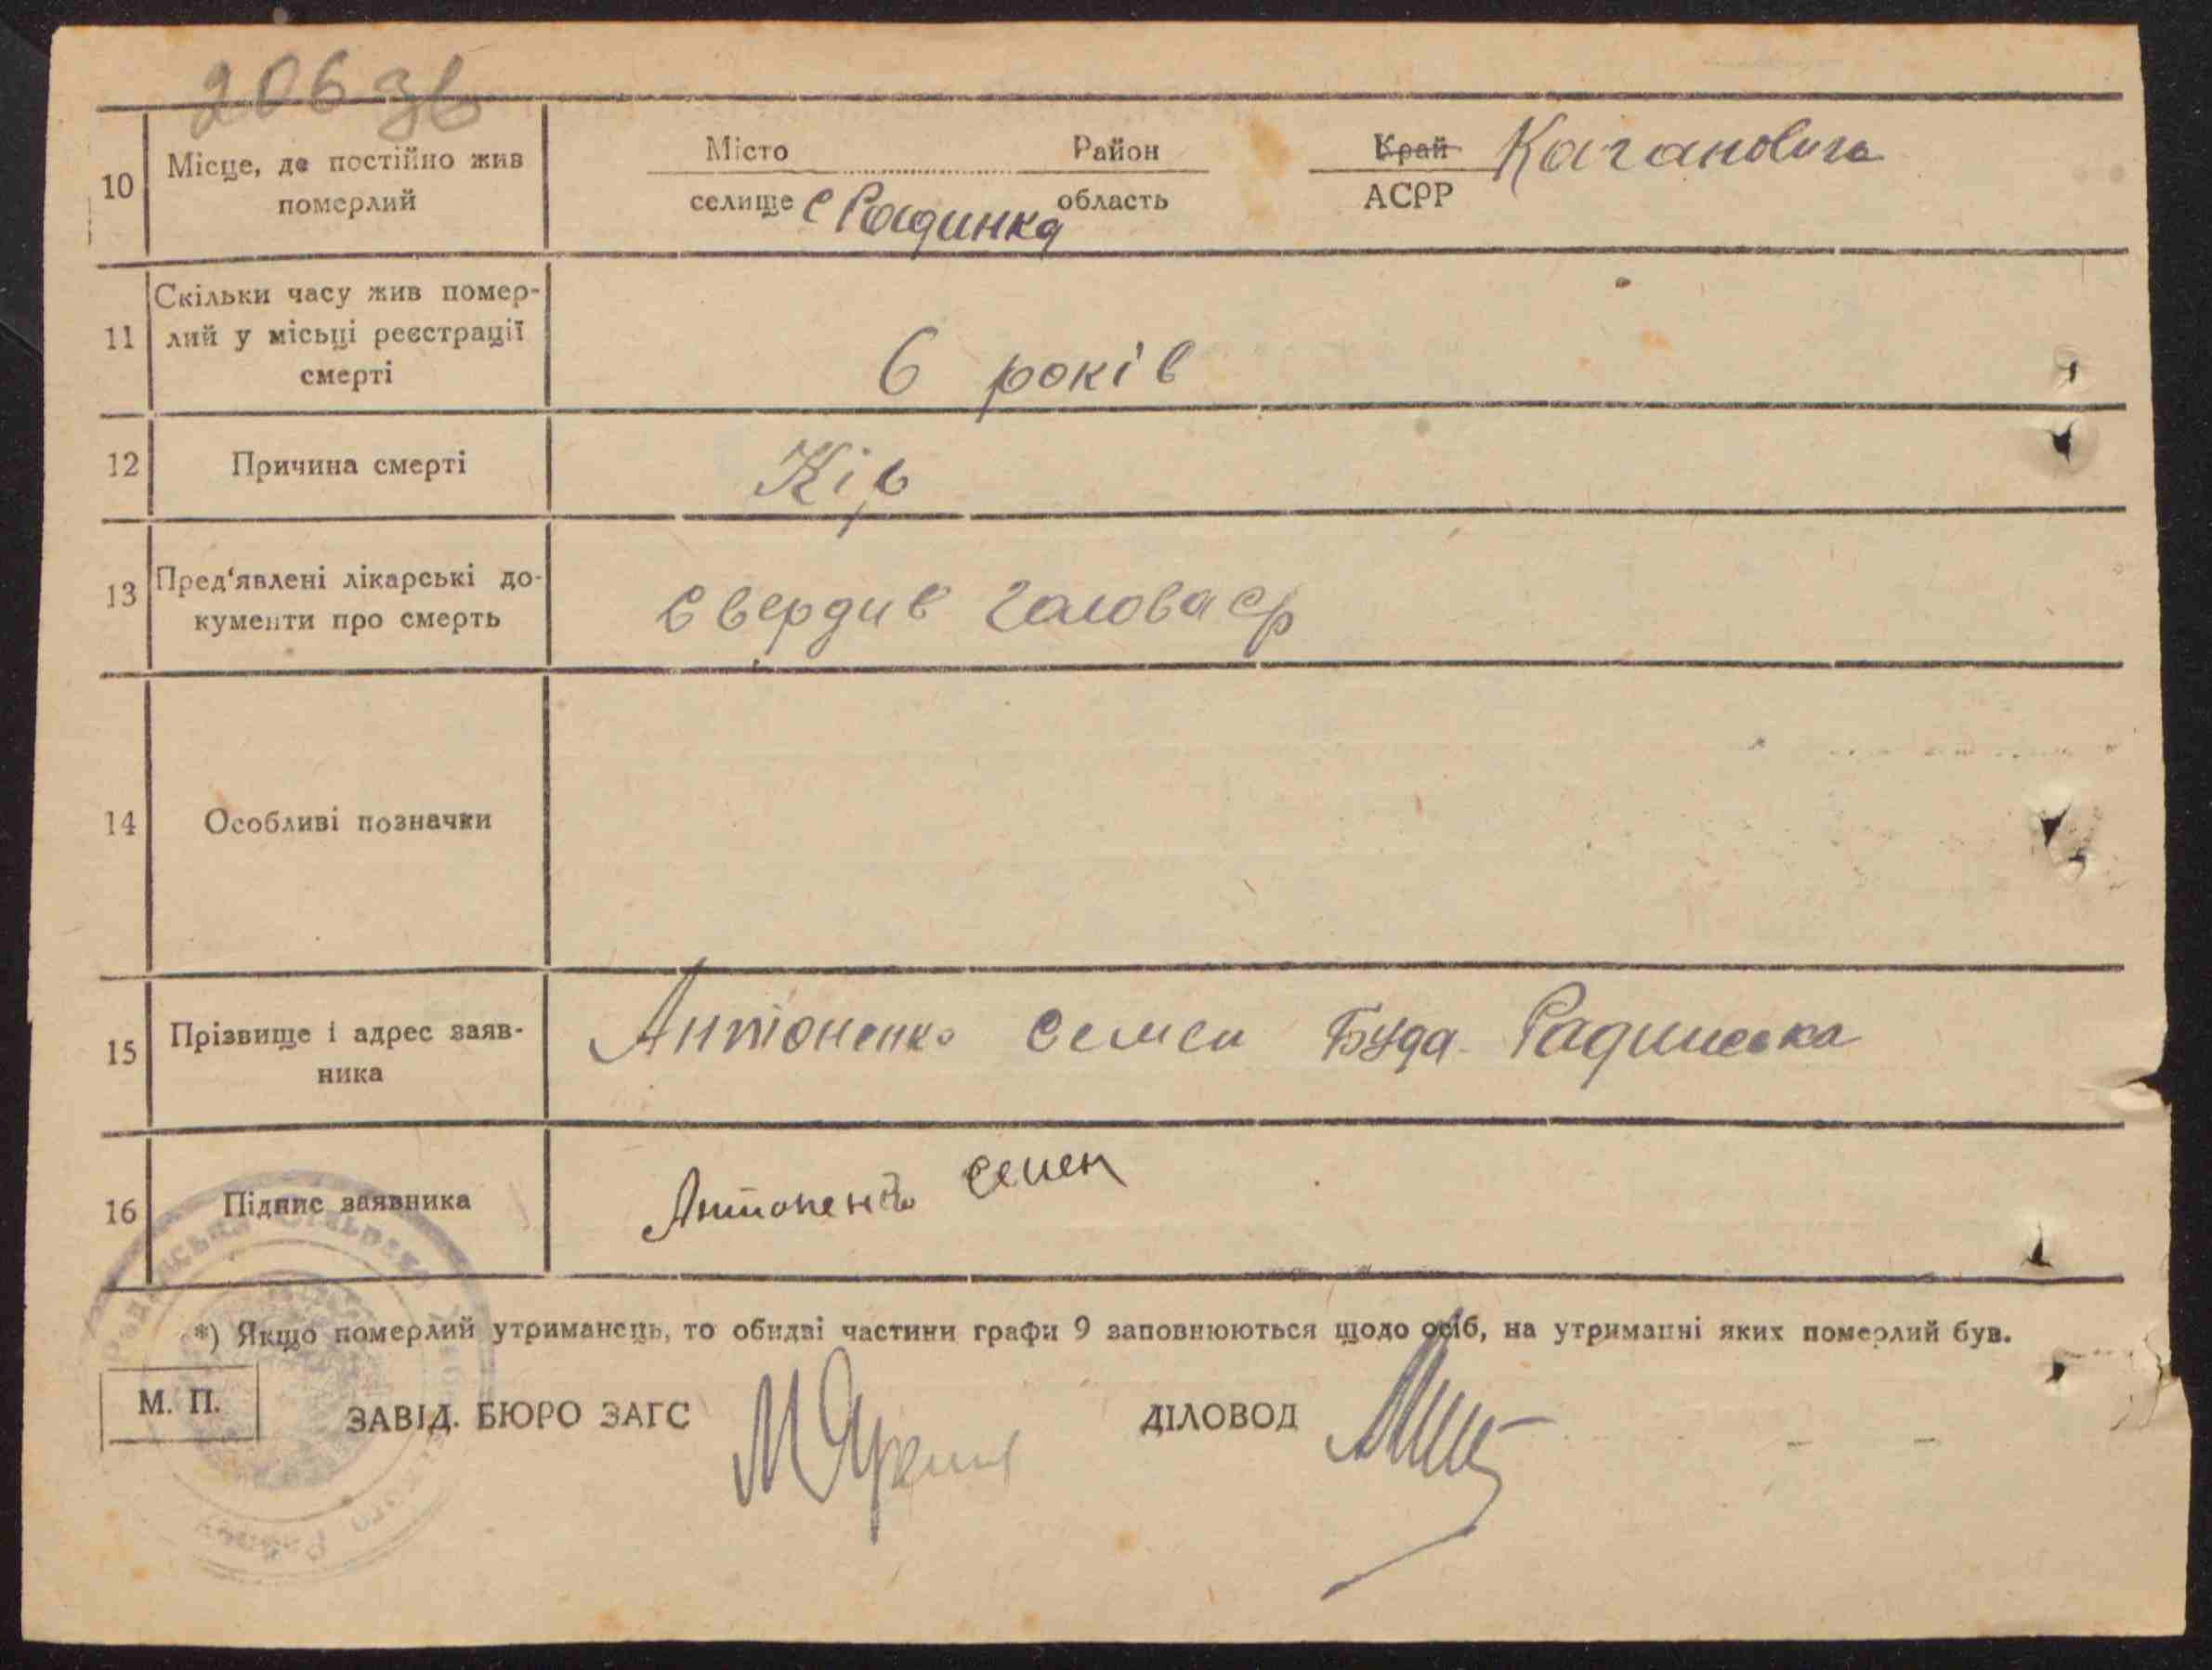 206 зв
10 Місце, де постійно жив померлий
Місто Район Край Кагановича
селище с Радинка область АСРР
11 Скільки часу жив помер-
лий у місьці реєстрації
смерті
6 років
12 Причина смерті Кір
13 Пред'явлені лікарські до-
кументи про смерть
свердив голова ср
14 Особливі позначки
15 Прізвище і адрес заяв-
ника
Антоненко Семен Буда Радинська
16 Підпис заявника Антоненко Семен
*) Якщо померлий утриманець, то обидві частини графи 9 заповнюються щодо осіб, на утриманні яких померлий був.
М. П. ЗАВІД. БЮРО ЗАГС ДІЛОВОД